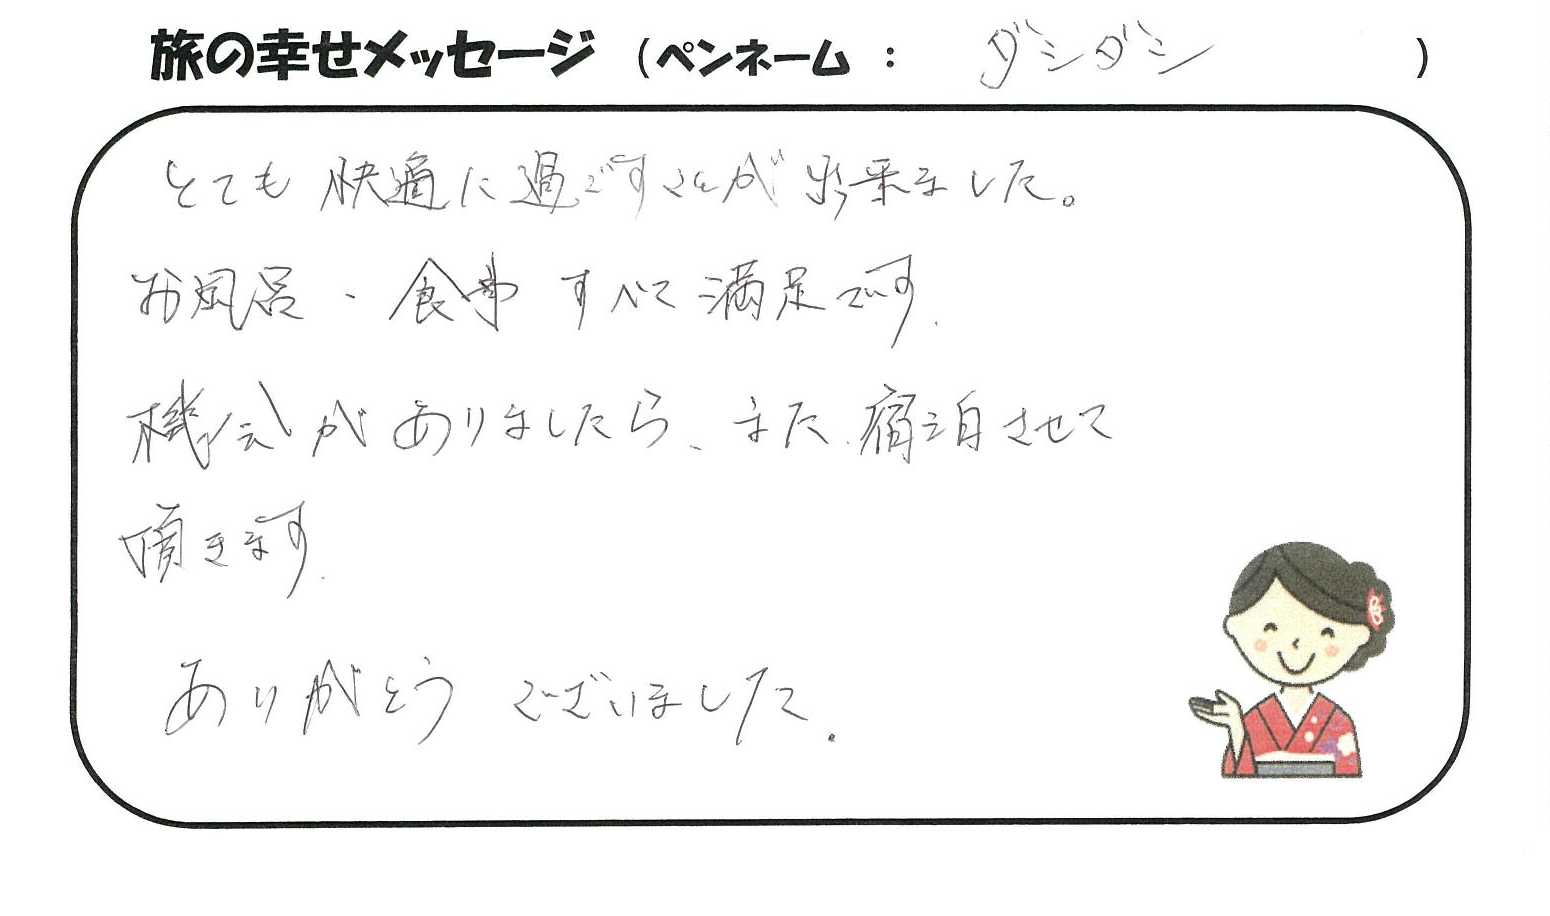 旅の幸せメッセージ (ペンネーム : ダンダン )
とても快適に過ごすことが出来ました。
お風呂・食事すべて満足です.
機会がありましたら、また、宿泊させて
頂きます.
ありがとうございました.